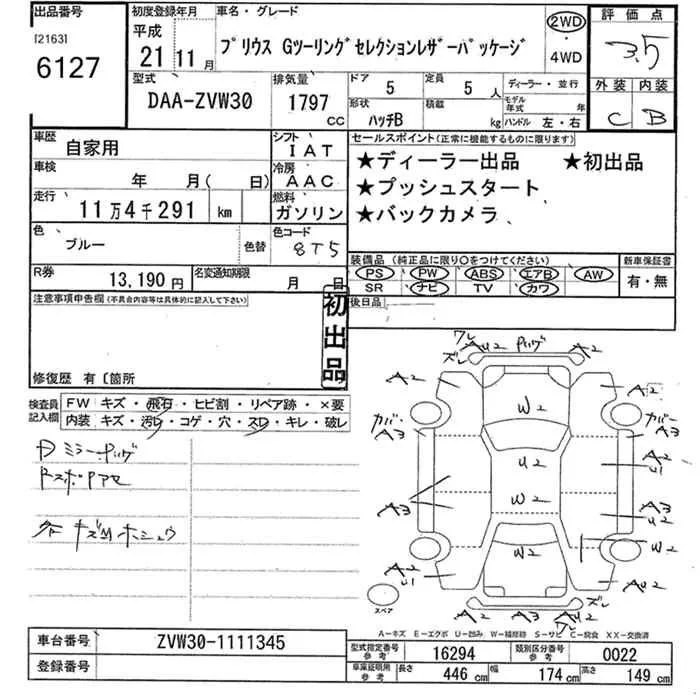 出品番号
[2163]
6127
初度登録年月
平成
21 11月
車名・グレード
プリウス Gツーリングセレクションレザーパッケージ
2WD
・
4WD
評価点
3.5
外装 内装
C B
型式
DAA-ZVW30
排気量
1797
cc
ドア
5
定員
5 人
形状
ハッチB
積載
kg
ディーラー・並行
モデル年式 年
ハンドル 左・右
車歴
自家用
シフト
IAT
車検
年 月( 日)
冷房
AAC
走行
11万4千291 km
燃料
ガソリン
色
ブルー
色替
色コード
8T5
R券
13,190円
名変通知期限
月 日
セールスポイント(正常に機能するものに限ります)
★ディーラー出品 ★初出品
★プッシュスタート
★バックカメラ
装備品(純正品に限り○をつけてください)
新車保証書
PS PW ABS エアB AW
SR ナビ TV カワ
有・無
注意事項申告欄(不具合内容等は具体的に記入して下さい)
初出品
後日品
修復歴 有〔箇所
検査員記入欄
FW キズ・飛石・ヒビ割・リペア跡・×要
内装 キズ・汚レ・コゲ・穴・スレ・キレ・破レ
ズレ AU2 A2
A2 A2
W2
カバー カバー
A3 A3
U2 A2
U1
A3 W2 A3
U2
W2 W2
A2 A2
U1
ズレ
AU2 A3 AU2
スペア
A-キズ E-エクボ U-凹み W-補修跡 S-サビ C-腐食 XX-交換済
車台番号
ZVW30-1111345
登録番号
型式指定番号
参考
16294
類別区分番号
参考
0022
車庫証明用
参考
長さ
446 cm
幅
174 cm
高さ
149 cm